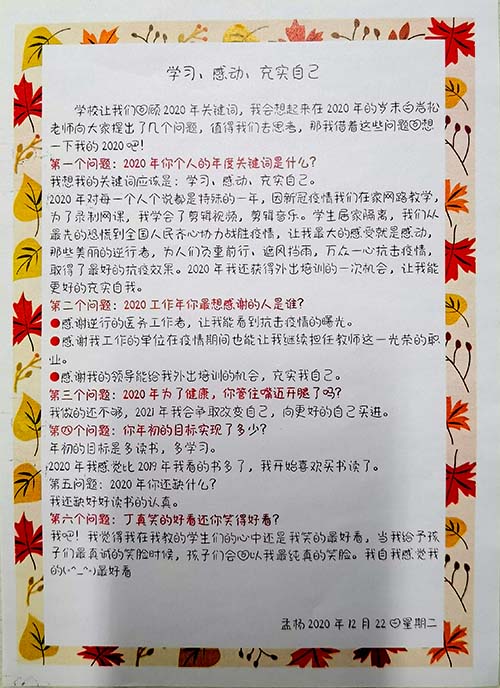 学习、感动、充实自己
学校让我们回顾2020年关键词，我会想起来在2020年的岁末白岩松
老师向大家提出了几个问题，值得我们去思考，那我借着这些问题回想
一下我的2020吧！
第一个问题：2020年你个人的年度关键词是什么？
我想我的关键词应该是：学习、感动、充实自己。
2020年对每一个人个说都是特殊的一年，因新冠疫情我们在家网路教学，
为了录制网课，我学会了剪辑视频，剪辑音乐。学生居家隔离，我们从
最先的恐慌到全国人民齐心协力战胜疫情，让我最大的感受就是感动，
那些美丽的逆行者，为人们负重前行、遮风挡雨，万众一心抗击疫情，
取得了最好的抗疫效果。2020年我还获得外出培训的一次机会，让我能
更好的充实自我。
第二个问题：2020工作年你最想感谢的人是谁？
●感谢逆行的医务工作者，让我能看到抗击疫情的曙光。
●感谢我工作的单位在疫情期间也能让我继续担任教师这一光荣的职
业。
●感谢我的领导能给我外出培训的机会，充实我自己。
第三个问题：2020年为了健康，你管住嘴迈开腿了吗？
我做的还不够，2021年我会争取改变自己，向更好的自己买进。
第四个问题：你年初的目标实现了多少？
年初的目标是多读书，多学习。
2020年我感觉比2019年我看的书多了，我开始喜欢买书读了。
第五问题：2020年你还缺什么？
我还缺好好读书的认真。
第六个问题：丁真笑的好看还你笑得好看？
我吧！我觉得我在我教的学生们的心中还是我笑的最好看，当我给予孩
子们最真诚的笑脸时候，孩子们会回以我最纯真的笑脸。我自我感觉我
的(*^_^*)最好看
孟杨2020年12月22日星期二